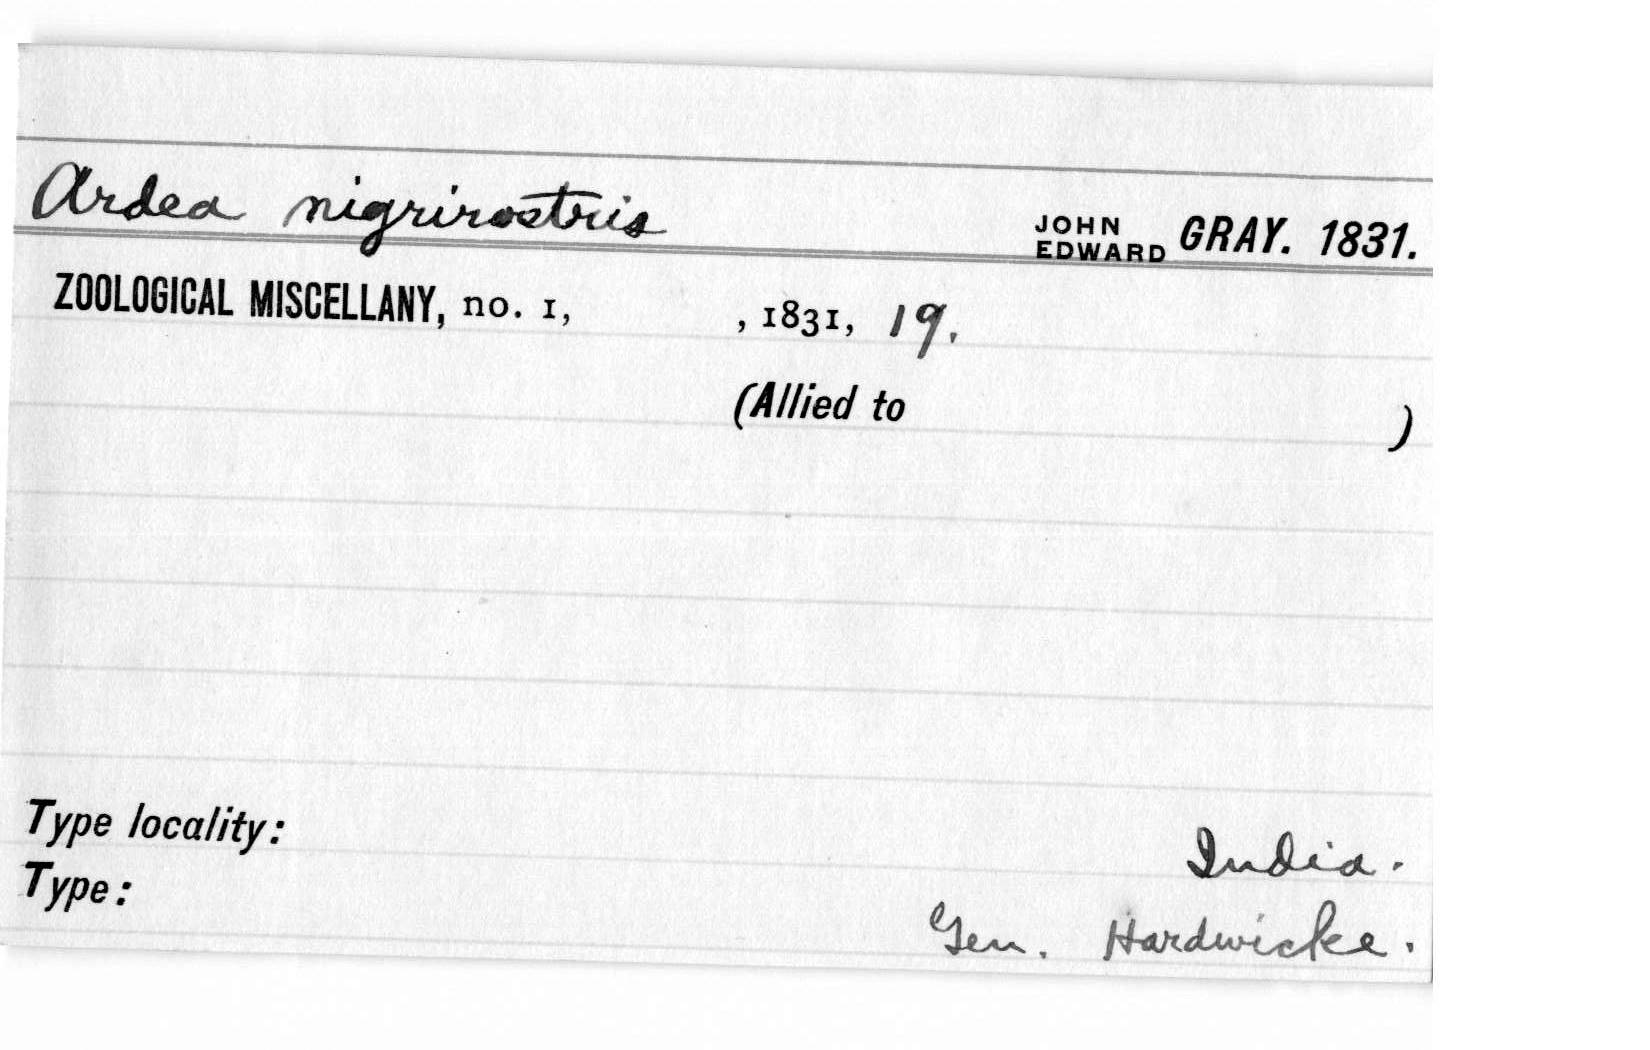 Ardea nigrirostris JOHN EDWARD GRAY. 1831.
ZOOLOGICAL MISCELLANY, no. 1, , 1831, 19.
(Allied to )
Type locality: India.
Type: Gen. Hardwicke.